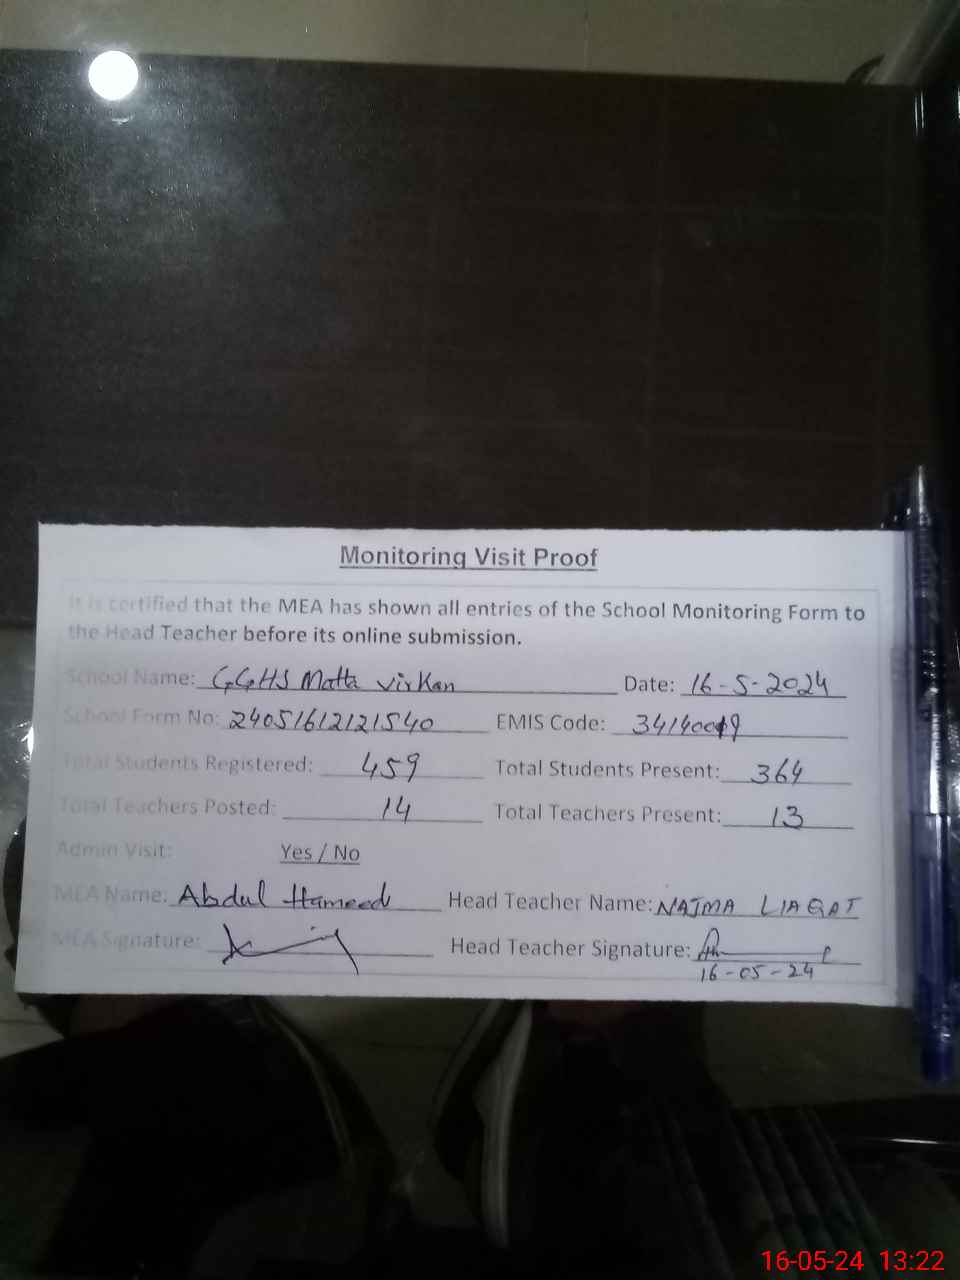 Monitoring Visit Proof
It is certified that the MEA has shown all entries of the School Monitoring Form to
the Head Teacher before its online submission.
School Name: GGHS Matta Virkan Date: 16-5-2024
School Form No: 24051612121540 EMIS Code: 34140019
Total Students Registered: 459 Total Students Present: 364
Total Teachers Posted: 14 Total Teachers Present: 13
Admin Visit: Yes / No
MEA Name: Abdul Hameed Head Teacher Name: NAJMA LIAQAT
MEA Signature: Head Teacher Signature:
16-05-24
16-05-24 13:22